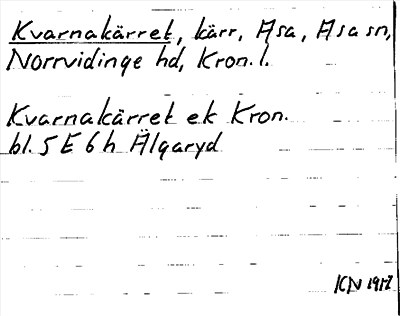 Kvarnakärret, kärr, Asa, Asa sn,
Norrvidinge hd, Kron. l.
Kvarnakärret ek Kron.
bl. 5 E 6 h Älgaryd
KN 1917